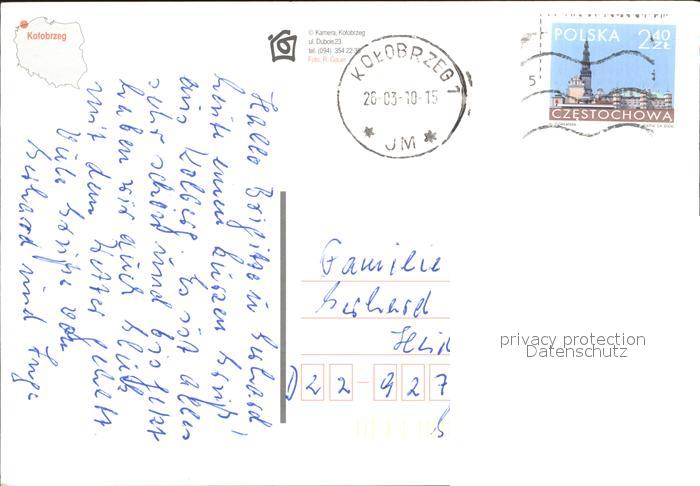 Kołobrzeg
© Kamera, Kołobrzeg
ul. Dubois 23
tel. (094) 354 22 35
Foto: R. Gauer
KOŁOBRZEG 1
26-03-10-15
JM
5
POLSKA 2,40 ZŁ
CZĘSTOCHOWA
Hallo Brigitte u. Gerhard
heute einen kurzen Gruß
aus Kolberg. Es ist alles
sehr schön und bis jetzt
haben wir auch Glück
mit dem Wetter gehabt.
Viele Grüße von
Gerhard und Inge
Familie
Gerhard
D 22-927
privacy protection
Datenschutz